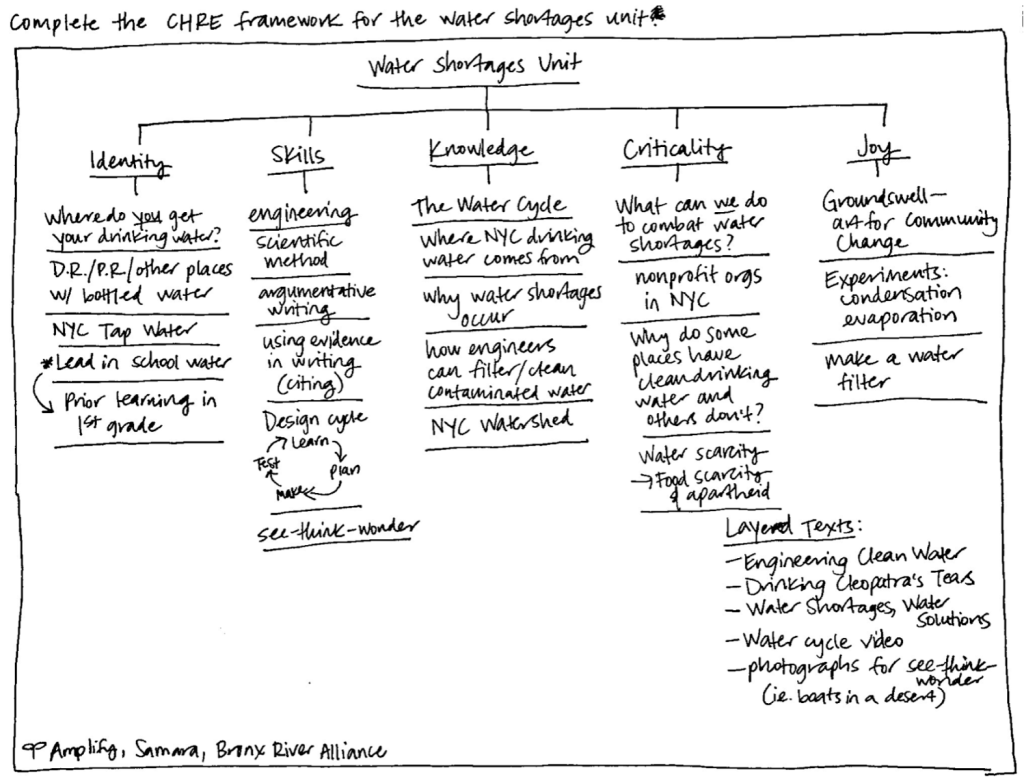 Complete the CHRE framework for the water shortages unit.
Water Shortages Unit
Identity
Where do you get
your drinking water?
D.R./P.R./other places
w/ bottled water
NYC Tap Water
*Lead in school water
Prior learning in
1st grade
Skills
engineering
scientific
method
argumentative
writing
using evidence
in writing
(citing)
Design cycle
Learn
Plan
Make
Test
see-think-wonder
Knowledge
The Water Cycle
where NYC drinking
water comes from
why water shortages
occur
how engineers
can filter/clean
contaminated water
NYC Watershed
Criticality
What can we do
to combat water
shortages?
nonprofit orgs
in NYC
Why do some
places have
clean drinking
water and
others don't?
Water scarcity
→ Food scarcity
& apartheid
Joy
Groundswell—
art for Community
Change
Experiments:
condensation
evaporation
make a water
filter
Layered Texts:
- Engineering Clean Water
- Drinking Cleopatra's Tears
- Water Shortages, Water
Solutions
- Water cycle video
- photographs for see-think-
wonder
(i.e. boats in a desert)
Amplify, Samara, Bronx River Alliance